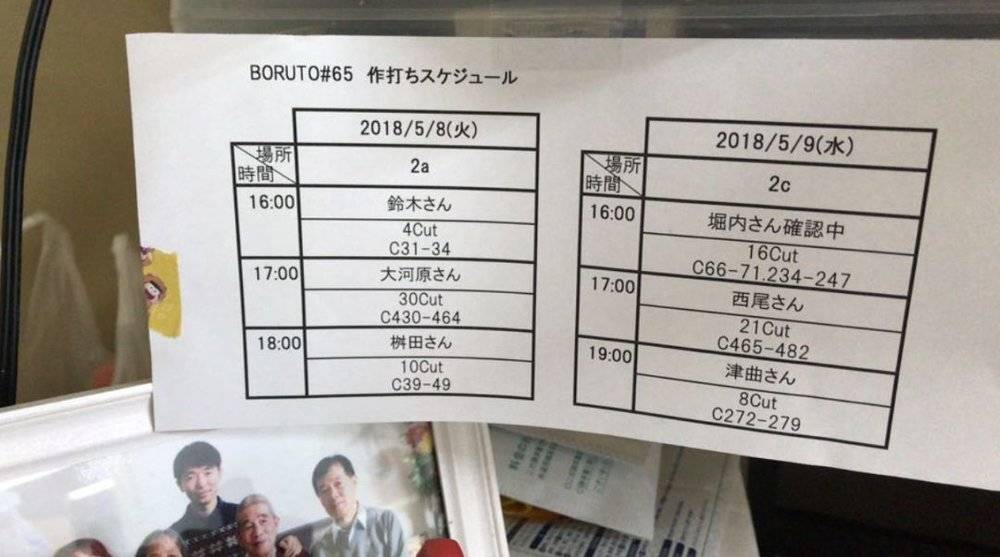 BORUTO#65 作打ちスケジュール
2018/5/8(火)
場所
時間
2a
16:00
鈴木さん
4Cut
C31-34
17:00
大河原さん
30Cut
C430-464
18:00
桝田さん
10Cut
C39-49
2018/5/9(水)
場所
時間
2c
16:00
堀内さん確認中
16Cut
C66-71.234-247
17:00
西尾さん
21Cut
C465-482
19:00
津曲さん
8Cut
C272-279